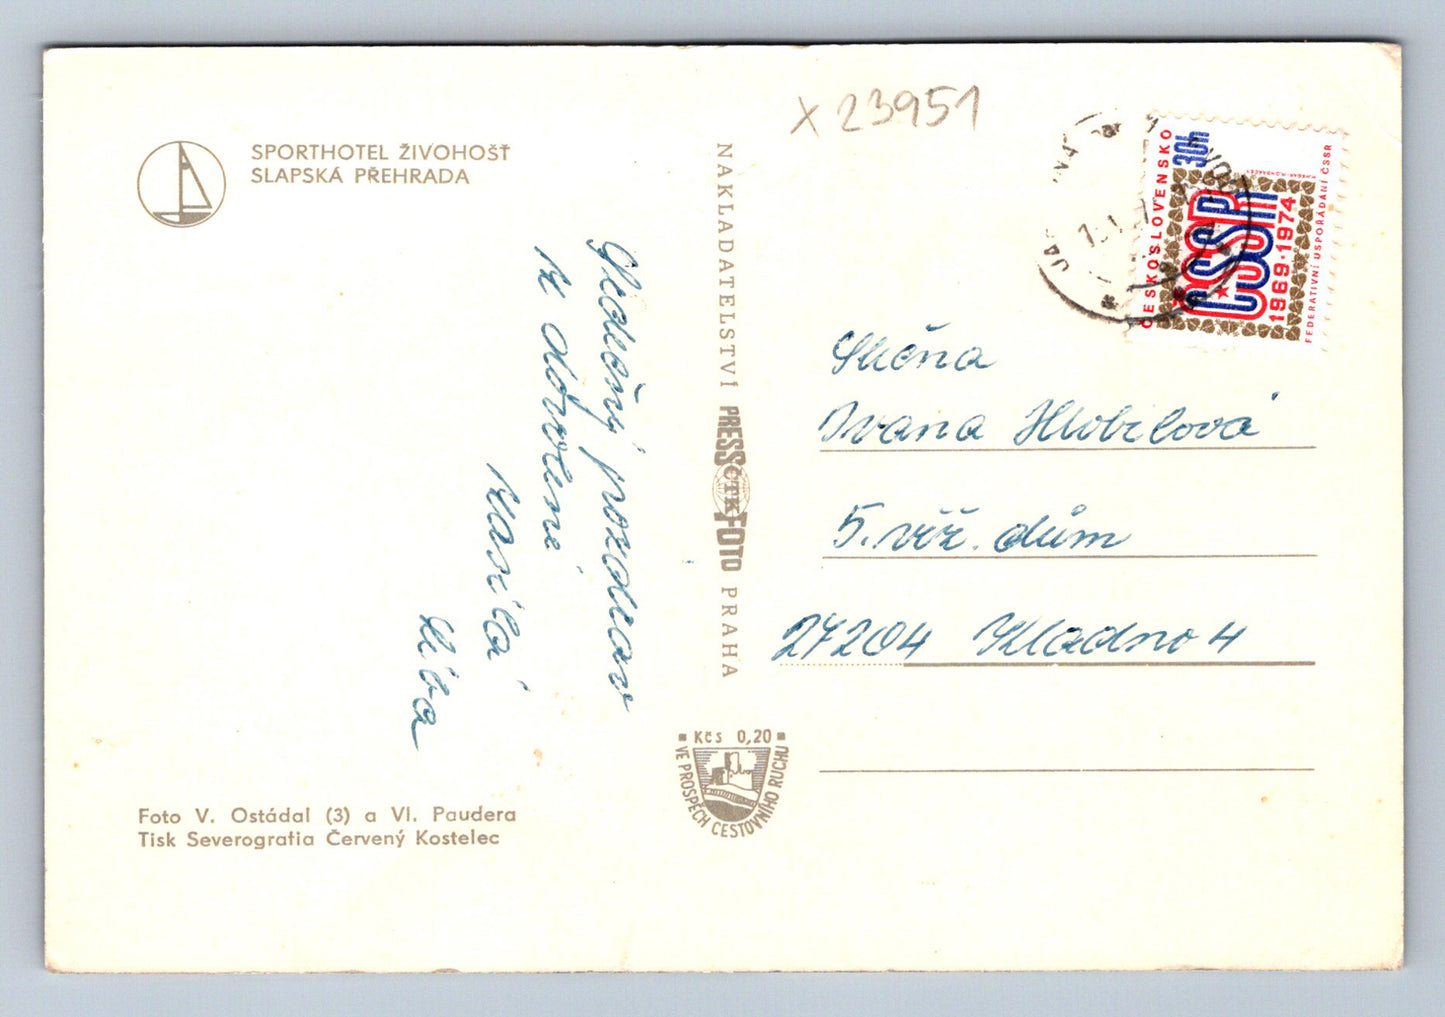 SPORTHOTEL ŽIVOHOŠŤ
SLAPSKÁ PŘEHRADA
Srdečný pozdrav
z dovolené
Lída
Foto V. Ostádal (3) a Vl. Paudera
Tisk Severografia Červený Kostelec
NAKLADATELSTVÍ PRESSFOTO PRAHA
ČTK
Kčs 0,20
VE PROSPĚCH CESTOVNÍHO RUCHU
X 23951
ČESKOSLOVENSKO
30h
ČSSR
1969·1974
FEDERATIVNÍ USPOŘÁDÁNÍ ČSSR
Slečna
Ivana Hlobilová
5. věž. dům
27204 Kladno 4